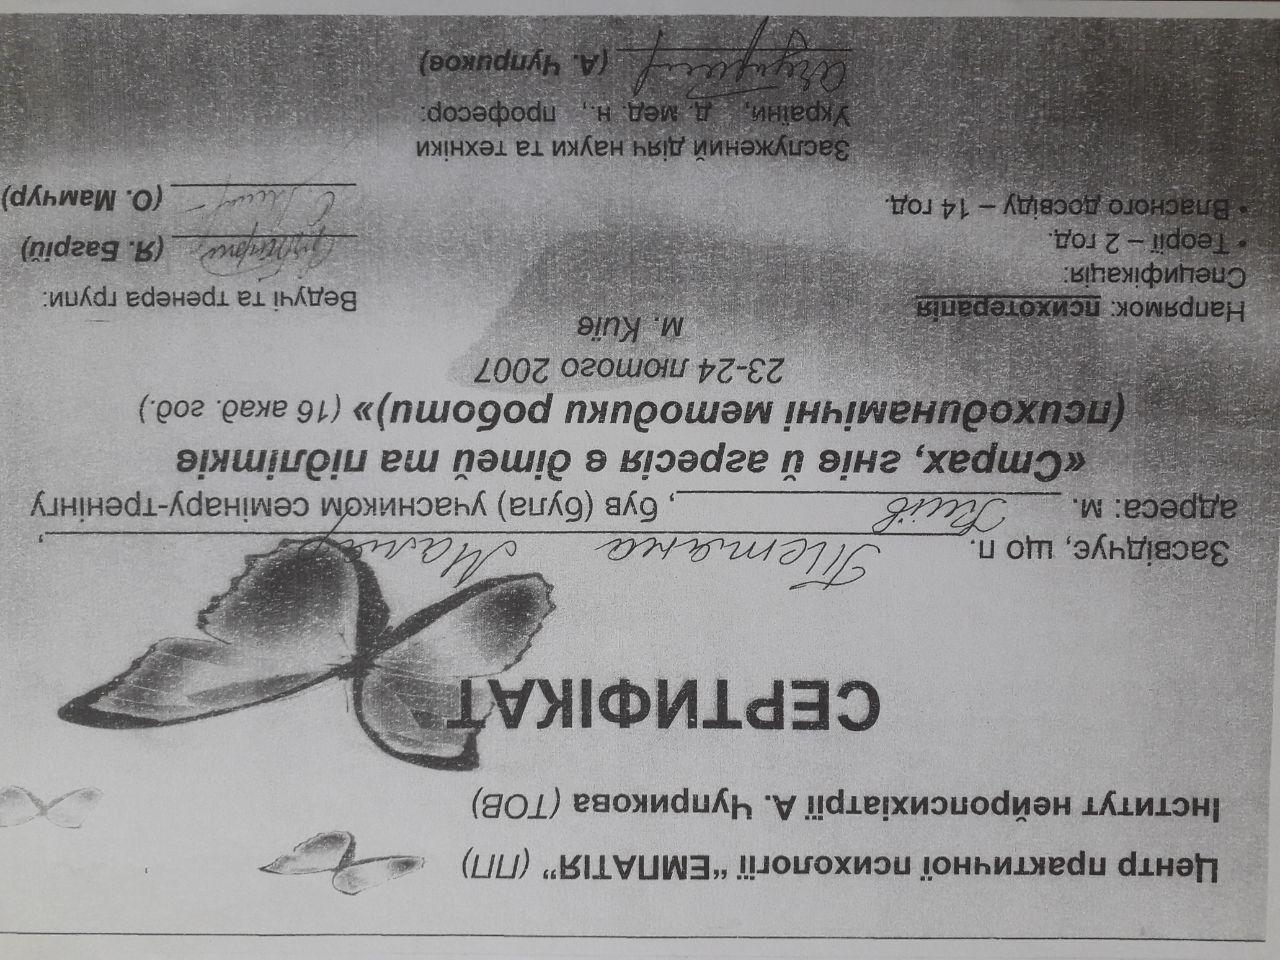 Центр практичної психології “ЕМПАТІЯ” (ПП)
Інститут нейропсихіатрії А. Чуприкова (ТОВ)
СЕРТИФІКАТ
Засвідчує, що п. Тетяна Маляр,
адреса: м. Київ, був (була) учасником семінару-тренінгу
«Страх, гнів й агресія в дітей та підлітків
(психодинамічні методики роботи)» (16 акад. год.)
23-24 лютого 2007
м. Київ
Напрямок: психотерапія
Специфікація:
• Теорії – 2 год.
• Власного досвіду – 14 год.
Ведучі та тренера групи:
(Я. Багрій)
(О. Мамчур)
Заслужений діяч науки та техніки
України, д. мед. н., професор:
(А. Чуприков)